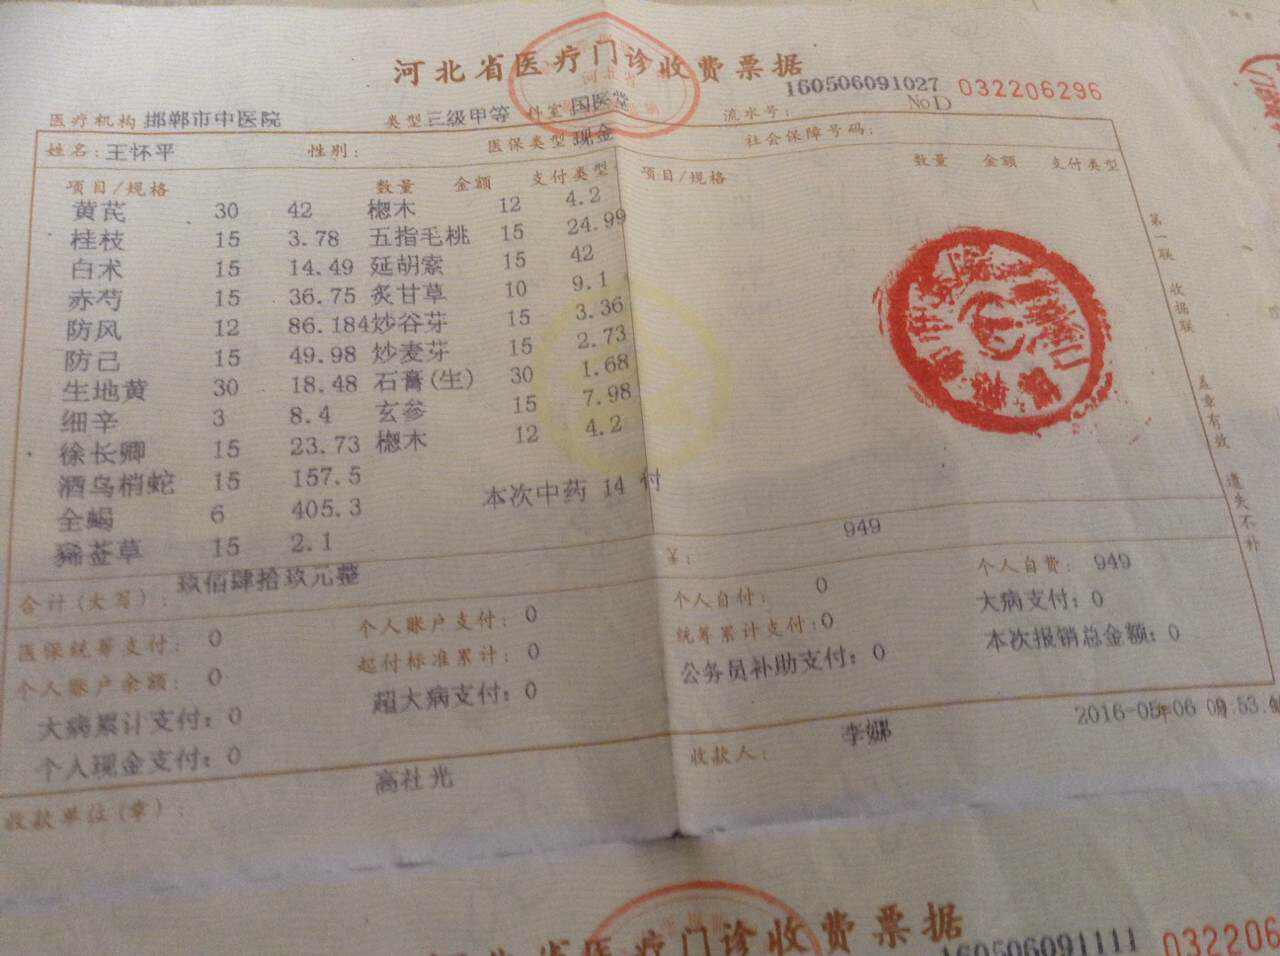 河北省医疗门诊收费票据
160506091027 032206296
医疗机构 邯郸市中医院 类型 三级甲等 科室 国医堂 流水号: NoD
姓名: 王怀平 性别: 医保类型 现金 社会保障号码:
项目/规格 数量 金额 支付类型 项目/规格 数量 金额 支付类型
黄芪 30 42 楤木 12 4.2
桂枝 15 3.78 五指毛桃 15 24.99
白术 15 14.49 延胡索 15 42
赤芍 15 36.75 炙甘草 10 9.1
防风 12 86.184 炒谷芽 15 3.36
防己 15 49.98 炒麦芽 15 2.73
生地黄 30 18.48 石膏(生) 30 1.68
细辛 3 8.4 玄参 15 7.98
徐长卿 15 23.73 楤木 12 4.2
酒乌梢蛇 15 157.5
全蝎 6 405.3 本次中药 14 付
豨莶草 15 2.1
合计(大写): 玖佰肆拾玖元整 ¥: 949
医保统筹支付: 0 个人账户支付: 0 个人自付: 0 个人自费: 949
个人账户余额: 0 起付标准累计: 0 统筹累计支付:0 大病支付:0
大病累计支付:0 超大病支付:0 公务员补助支付:0 本次报销总金额:0
个人现金支付:0
收款单位(章): 高社光 收款人: 李娜 2016-05-06 09.53.
第一联 收据联 盖章有效 遗失不补
河北省医疗门诊收费票据
160506091111 032206